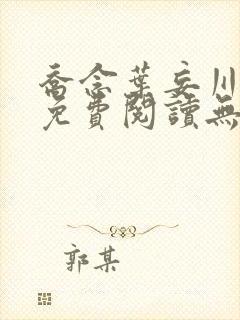 喬念葉妄川
免費閱讀無
郭某